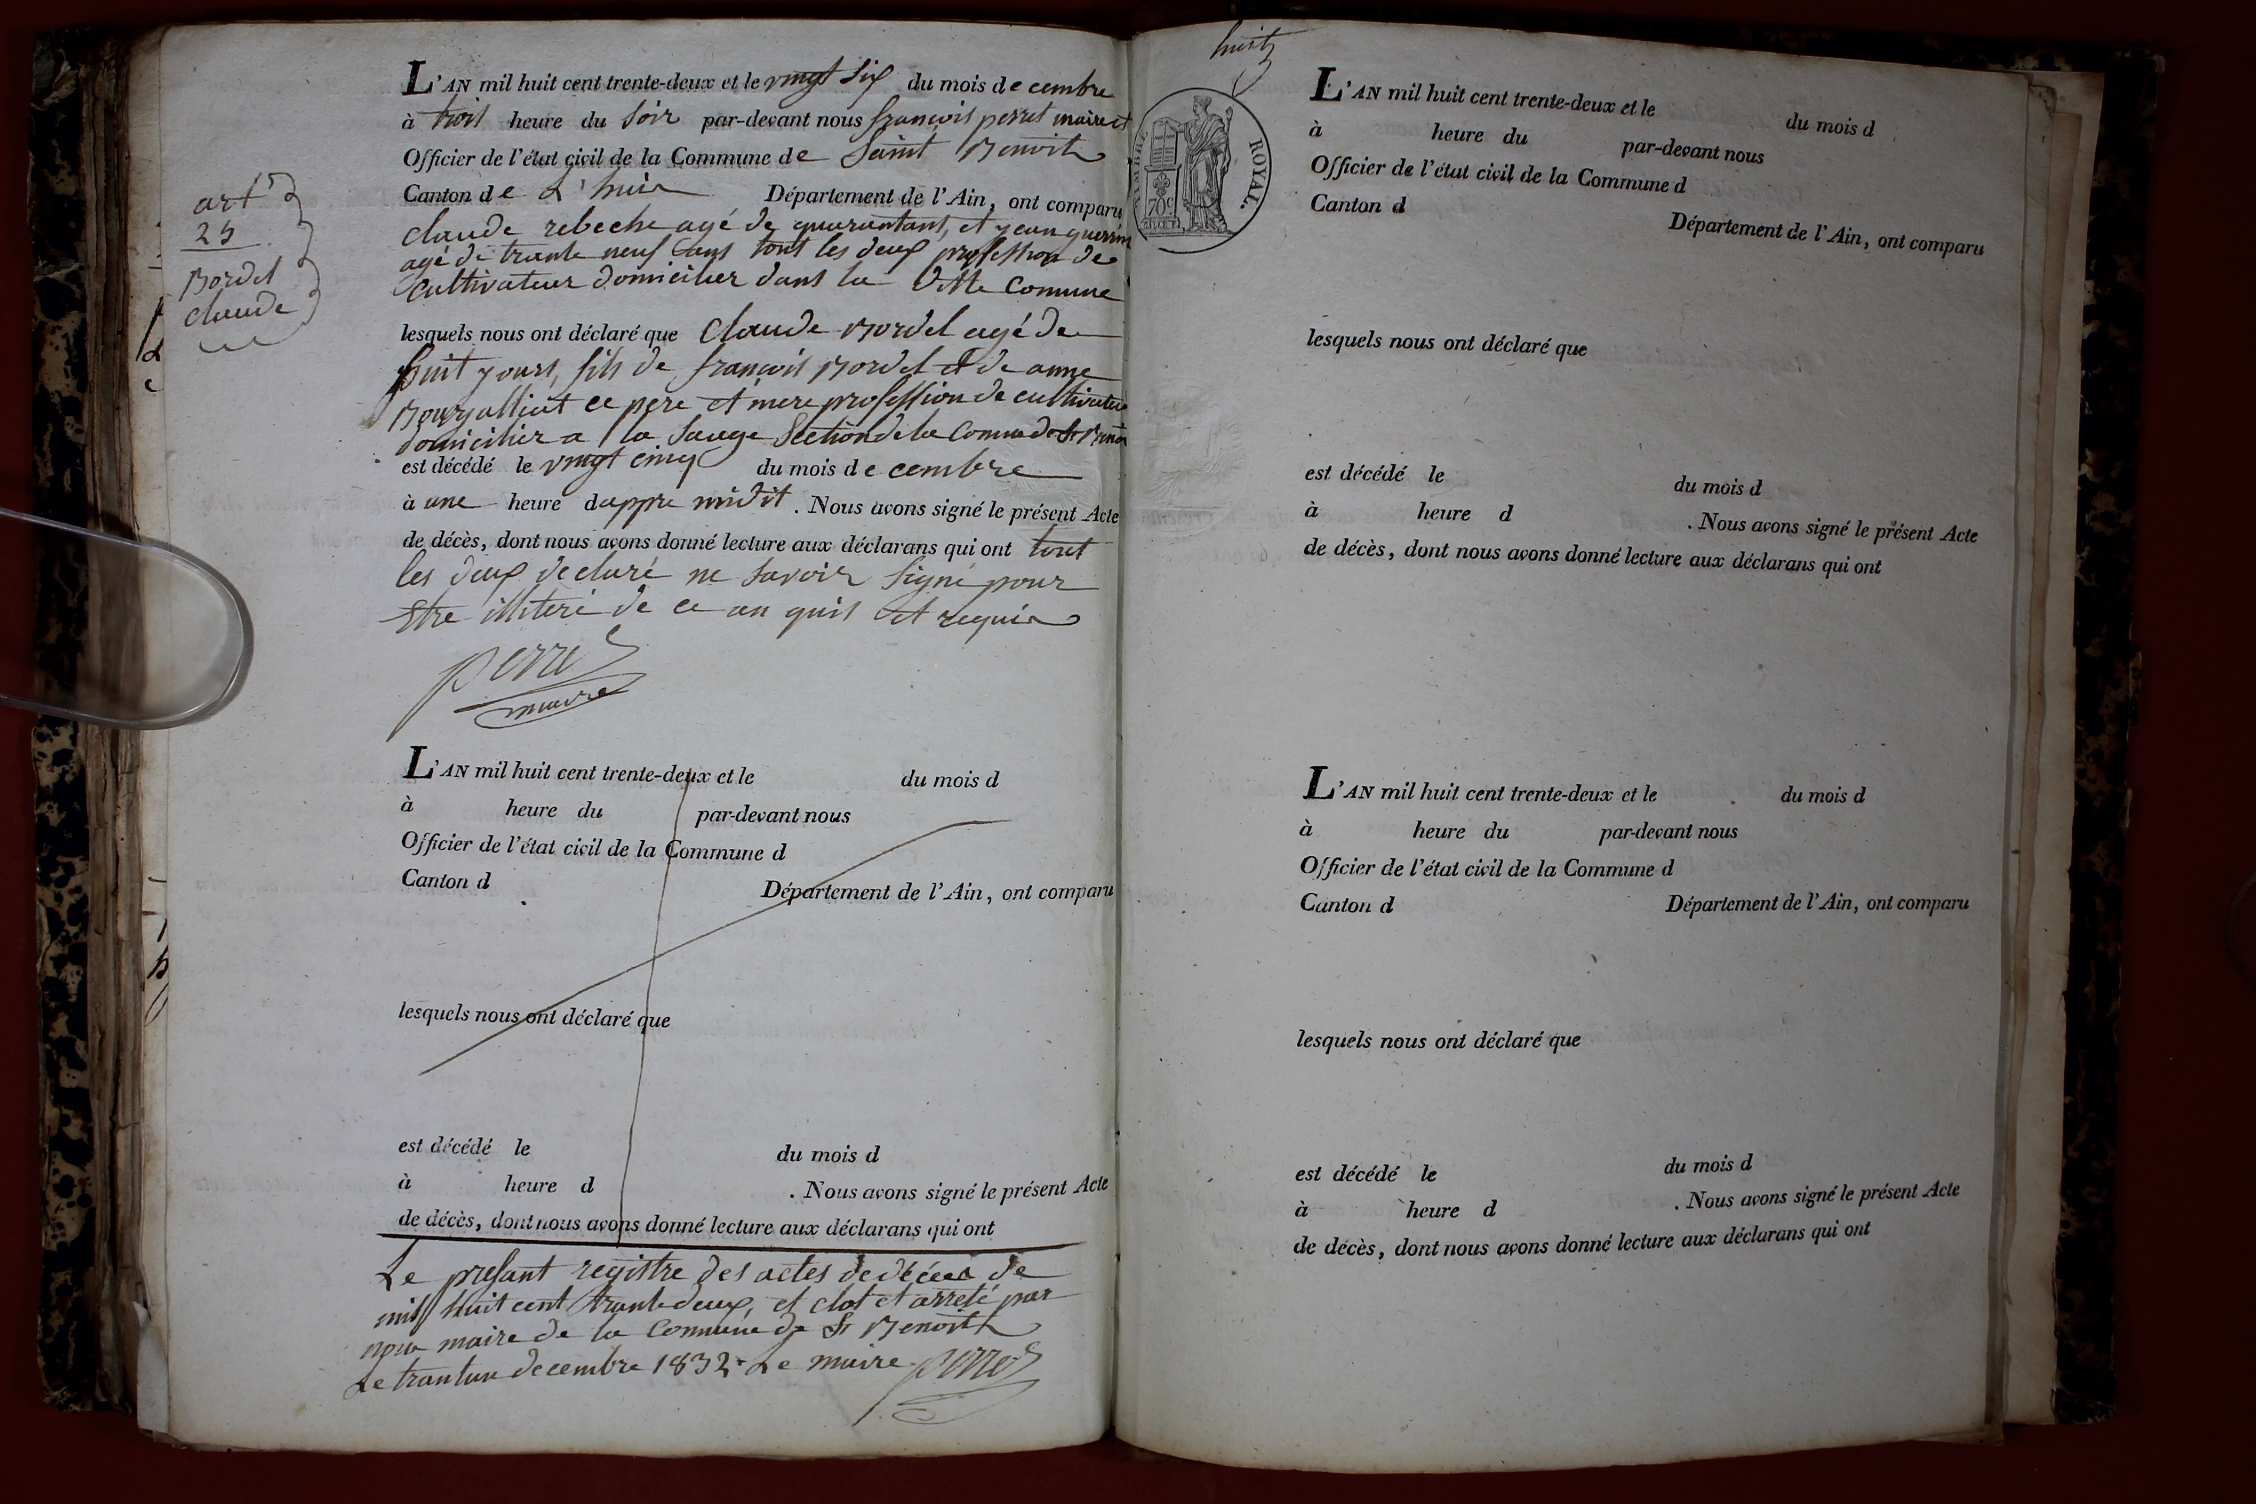 L'AN mil huit cent trente-deux et le vingt six du mois de cembre
à troit heure du soir par-devant nous francoit perret maire et
Officier de l'état civil de la Commune de Saint Benoit
Canton de L'huis Département de l'Ain, ont comparu
claude rebeche agé de quarantant, et jean guerrin
agé de trante neuf ans tout les deux profession de
cultivateur domicilier dans la ditte Comune
lesquels nous ont déclaré que Claude Bordel agé de
huit jours, fils de francoit Bordel et de anne
ce pere et mere profession de cultivateur
domicilier a la Sauge Section de la Comune de St Benoit
est décédé le vingt cinq du mois de cembre
à une heure dappre midit. Nous avons signé le présent Acte
de décès, dont nous avons donné lecture aux déclarans qui ont tout
les deux declaré ne savoir signé pour
Etre illiteré de ce an quit et requis
perret
maire
art
25
Bordel
claude
L'AN mil huit cent trente-deux et le du mois d
à heure du par-devant nous
Officier de l'état civil de la Commune d
Canton d Département de l'Ain, ont comparu
lesquels nous ont déclaré que
est décédé le du mois d
à heure d . Nous avons signé le présent Acte
de décès, dont nous avons donné lecture aux déclarans qui ont
Le presant registre des actes de décéea de
mill huit cent trante deux, et clot et arreté par
nous maire de la Commune de St Benoit
Le trantun decembre 1832. Le maire perret
huit
TIMBRE ROYAL.
70c
L'AN mil huit cent trente-deux et le du mois d
à heure du par-devant nous
Officier de l'état civil de la Commune d
Canton d Département de l'Ain, ont comparu
lesquels nous ont déclaré que
est décédé le du mois d
à heure d . Nous avons signé le présent Acte
de décès, dont nous avons donné lecture aux déclarans qui ont
L'AN mil huit cent trente-deux et le du mois d
à heure du par-devant nous
Officier de l'état civil de la Commune d
Canton d Département de l'Ain, ont comparu
lesquels nous ont déclaré que
est décédé le du mois d
à heure d . Nous avons signé le présent Acte
de décès, dont nous avons donné lecture aux déclarans qui ont